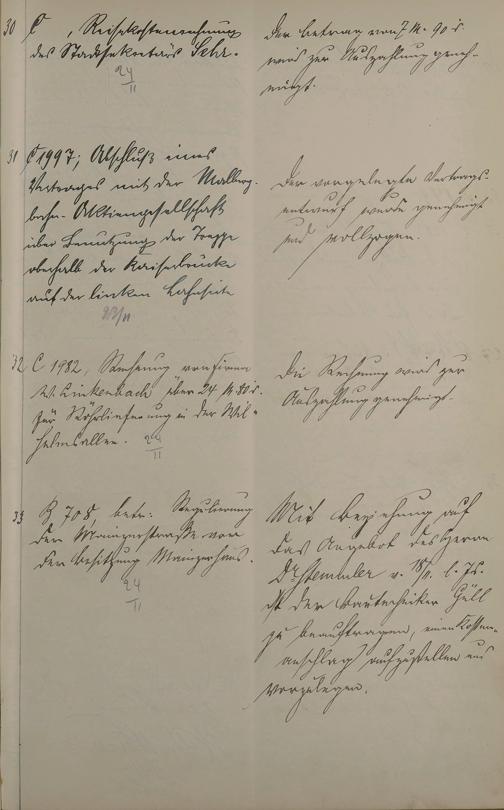 30 C , Reisekostenrechnung
des Stadtsekretairs Sehr.
24
II
Der Betrag von 7 M. 90 d.
wird zur Auszahlung geneh-
migt.
31 C 1997; Abschluß eines
Vertrages mit der Malberg-
bahn-Aktiengesellschaft
über Benutzung der Treppe
oberhalb der Kaiserbrücke
auf der linken Lahnseite
23/II
Der vorgelegte Vertrags-
entwurf wurde genehmigt
und vollzogen.
32 C 1982, Rechnung von Firma
W. Linkenbach über 24 M 80 d.
für Röhrlieferung in der Wil-
helmsallee.
24
II
Die Rechnung wird zur
Auszahlung genehmigt.
33 B 708, betr: Regulierung
der Mainzerstraße vor
der Besitzung Mainzerhaus.
24
II
Mit Beziehung auf
das Angebot des Herrn
Dr Stemmler v. 18/II. l. Js.
ist der Bautechniker Güll
zu beauftragen, einen Kosten-
anschlag aufzustellen und
vorzulegen.